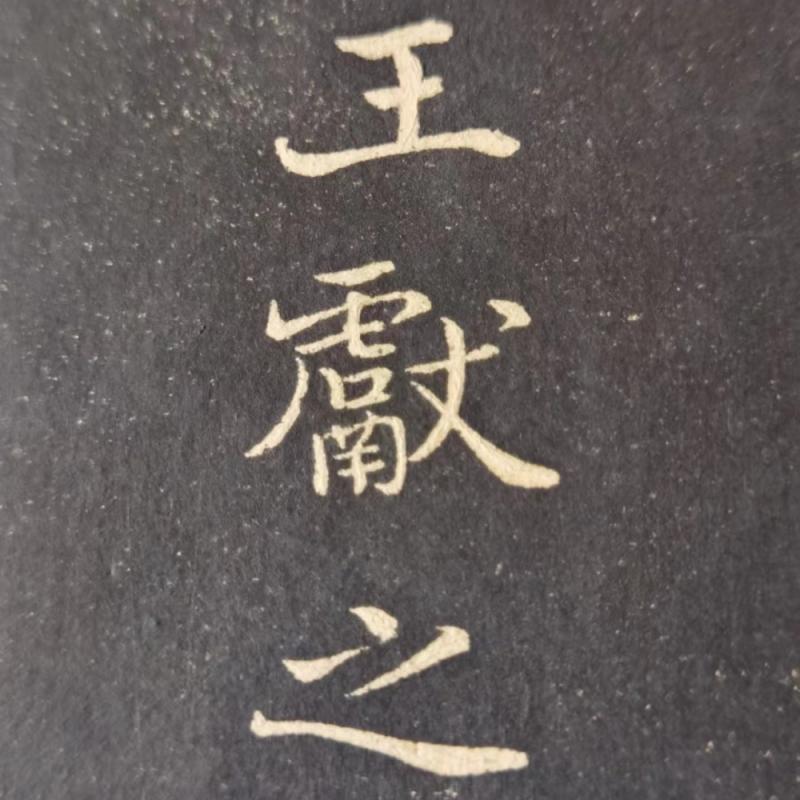 王獻之